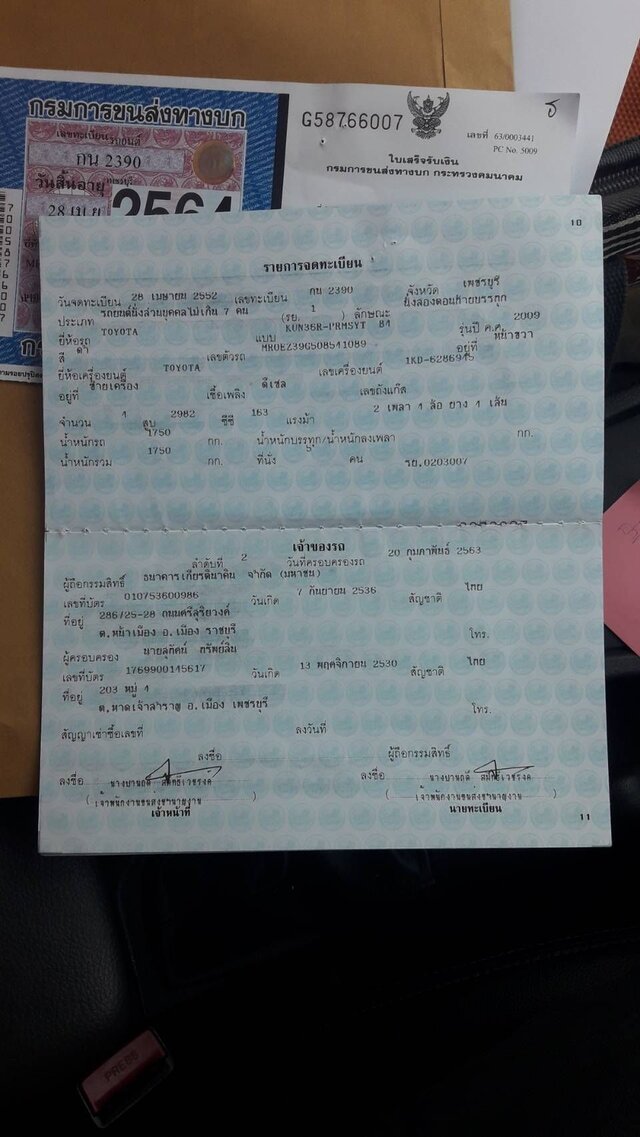 กรมการขนส่งทางบก
เลขทะเบียนรถยนต์
กน 2390
วันสิ้นอายุ
28 เม.ย
2564
G58766007
เลขที่ 63/0003441
PC No. 5009
ใบเสร็จรับเงิน
กรมการขนส่งทางบก กระทรวงคมนาคม
10
รายการจดทะเบียน
วันจดทะเบียน 28 เมษายน 2552 เลขทะเบียน กน 2390 จังหวัด เพชรบุรี
ประเภท รถยนต์นั่งส่วนบุคคลไม่เกิน 7 คน (รย. 1) ลักษณะ นั่งสองตอนท้ายบรรทุก
ยี่ห้อรถ TOYOTA แบบ KUN36R-PRMSYT B4 รุ่นปี ค.ศ. 2009
สี ดำ เลขตัวรถ MR0EZ39G508541089 อยู่ที่ หน้าขวา
ยี่ห้อเครื่องยนต์ TOYOTA เลขเครื่องยนต์ 1KD-6286945
อยู่ที่ ซ้ายเครื่อง เชื้อเพลิง ดีเซล เลขถังแก๊ส
จำนวน 4 สูบ 2982 ซีซี 163 แรงม้า 2 เพลา 4 ล้อ ยาง 4 เส้น
น้ำหนักรถ 1750 กก. น้ำหนักบรรทุก/น้ำหนักลงเพลา กก.
น้ำหนักรวม 1750 กก. ที่นั่ง 5 คน รย.0203007
เจ้าของรถ
ลำดับที่ 2 วันที่ครอบครองรถ 20 กุมภาพันธ์ 2563
ผู้ถือกรรมสิทธิ์ ธนาคารเกียรตินาคิน จำกัด (มหาชน)
เลขที่บัตร 010753600986 วันเกิด 7 กันยายน 2536 สัญชาติ ไทย
ที่อยู่ 286/25-28 ถนนศรีสุริยวงศ์
ต.หน้าเมือง อ.เมือง ราชบุรี โทร.
ผู้ครอบครอง นายสุทัศน์ ทรัพย์สิน
เลขที่บัตร 1769900145617 วันเกิด 13 พฤศจิกายน 2530 สัญชาติ ไทย
ที่อยู่ 203 หมู่ 1
ต.หาดเจ้าสำราญ อ.เมือง เพชรบุรี โทร.
สัญญาเช่าซื้อเลขที่ ลงวันที่
ลงชื่อ ผู้ถือกรรมสิทธิ์
ลงชื่อ ลงชื่อ
(เจ้าพนักงานขนส่งชำนาญงาน) (เจ้าพนักงานขนส่งชำนาญงาน)
เจ้าหน้าที่ นายทะเบียน
11
PRESS